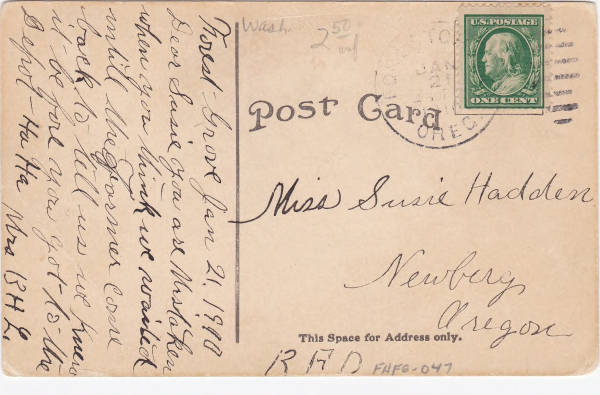 Forest Grove Jan 21, 1910
Dear Susie You are Mistaken
when you think we waited
untill the farmer come
back to tell us we knew
it be fore you got to the
Depot - Ha Ha Mrs B H L
Wash.
2.50
U.S. POSTAGE
ONE CENT
Post Card
OREG
Miss Susie Hadden
Newberg
Oregon
This Space for Address only.
R F D
FHFG-047